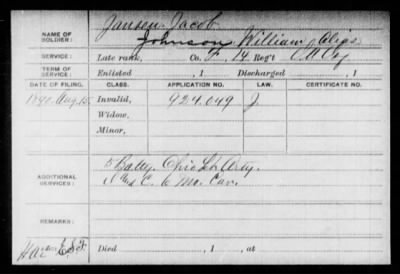 Jansen Jacob
NAME OF SOLDIER: Johnson, William, Alias
SERVICE: Late rank, Co. F, 14 Reg't
TERM OF SERVICE: Enlisted , 1 Discharged , 1
DATE OF FILING. CLASS. APPLICATION NO. LAW. CERTIFICATE NO.
1890 Aug 15 Invalid, 924.049 J.
Widow,
Minor,
ADDITIONAL SERVICES: 5 Batty. Ohio Lt Arty.
C. 6 Mo. Cav.
REMARKS:
Died , 1 , at